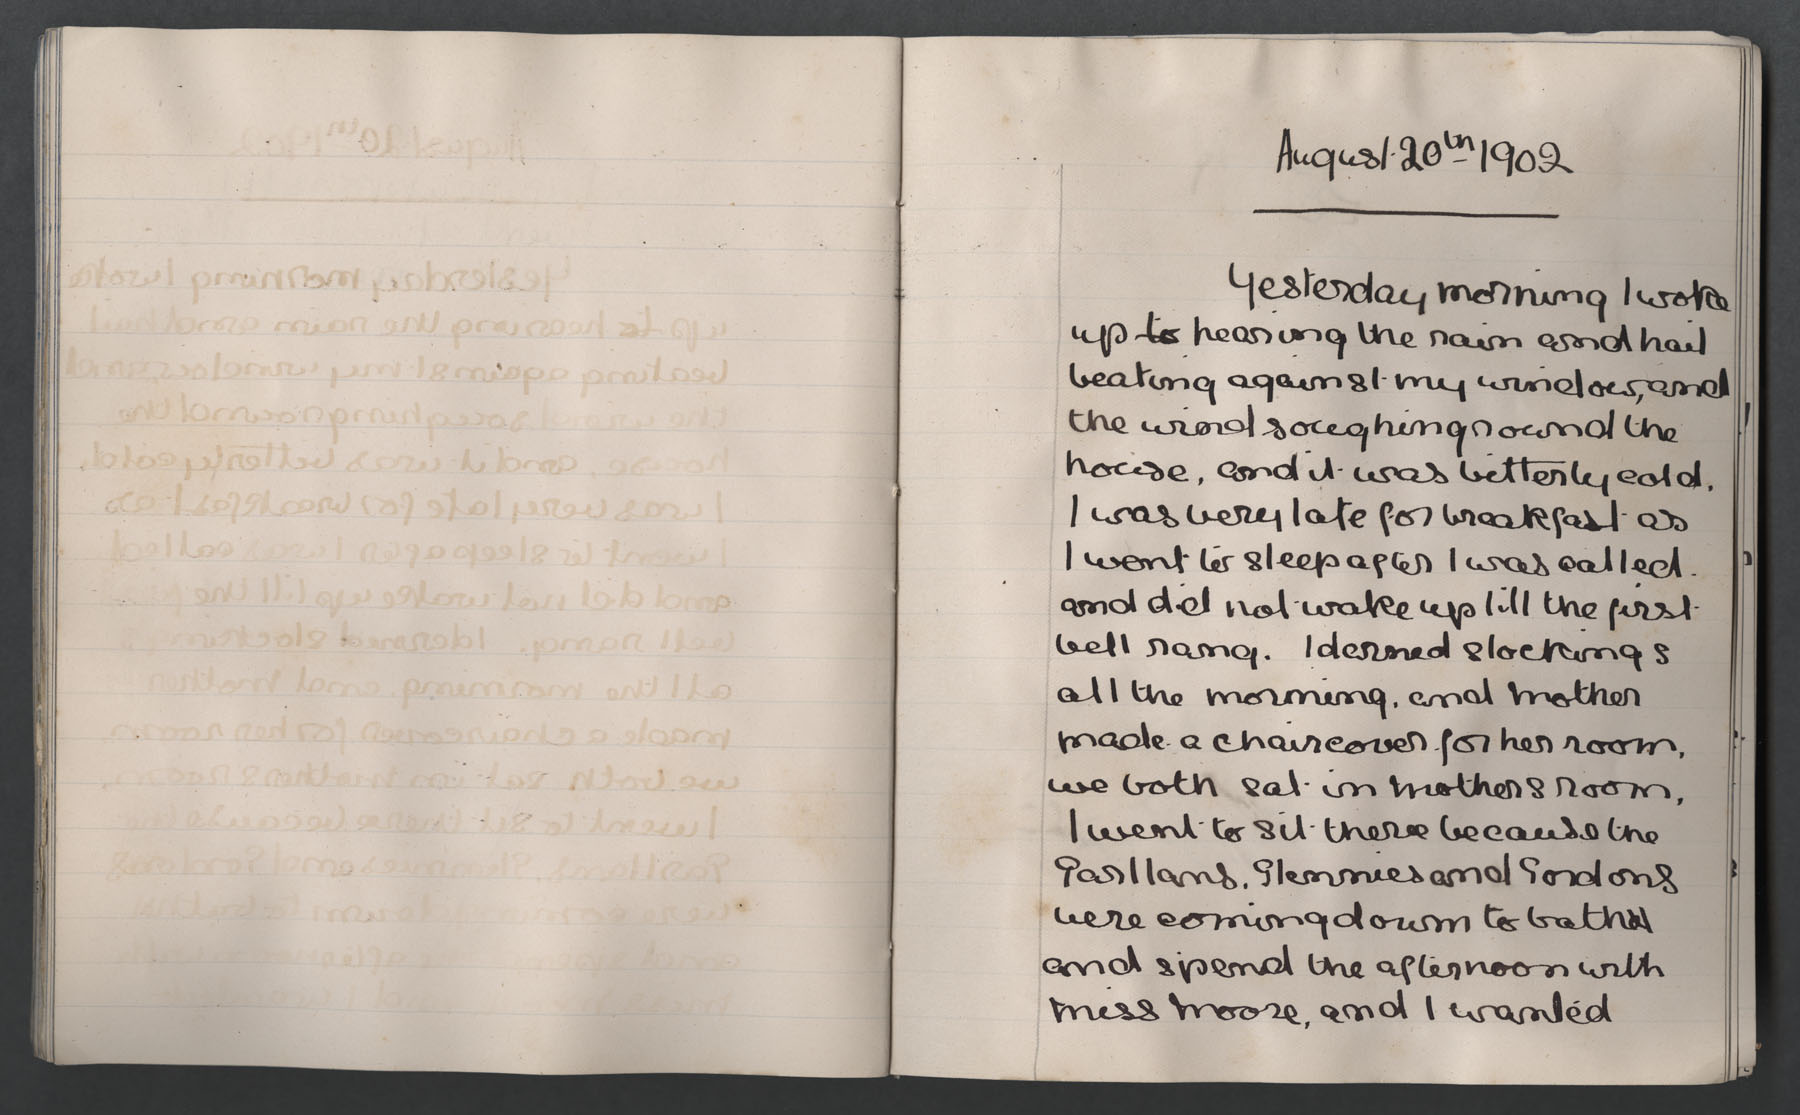 August 20th 1902
Yesterday morning I woke
up to hearing the rain and hail
beating against my window, and
the wind soughing round the
house, and it was bitterly cold.
I was very late for breakfast as
I went to sleep after I was called
and did not wake up till the first
bell rang. I derned stockings
all the morning, and Mother
made a chaircover for her room,
we both sat in Mothers room,
I went to sit there because the
Gartlans, Glennies and Gordons
were coming down to bathe
and spend the afternoon with
Miss Moore, and I wanted